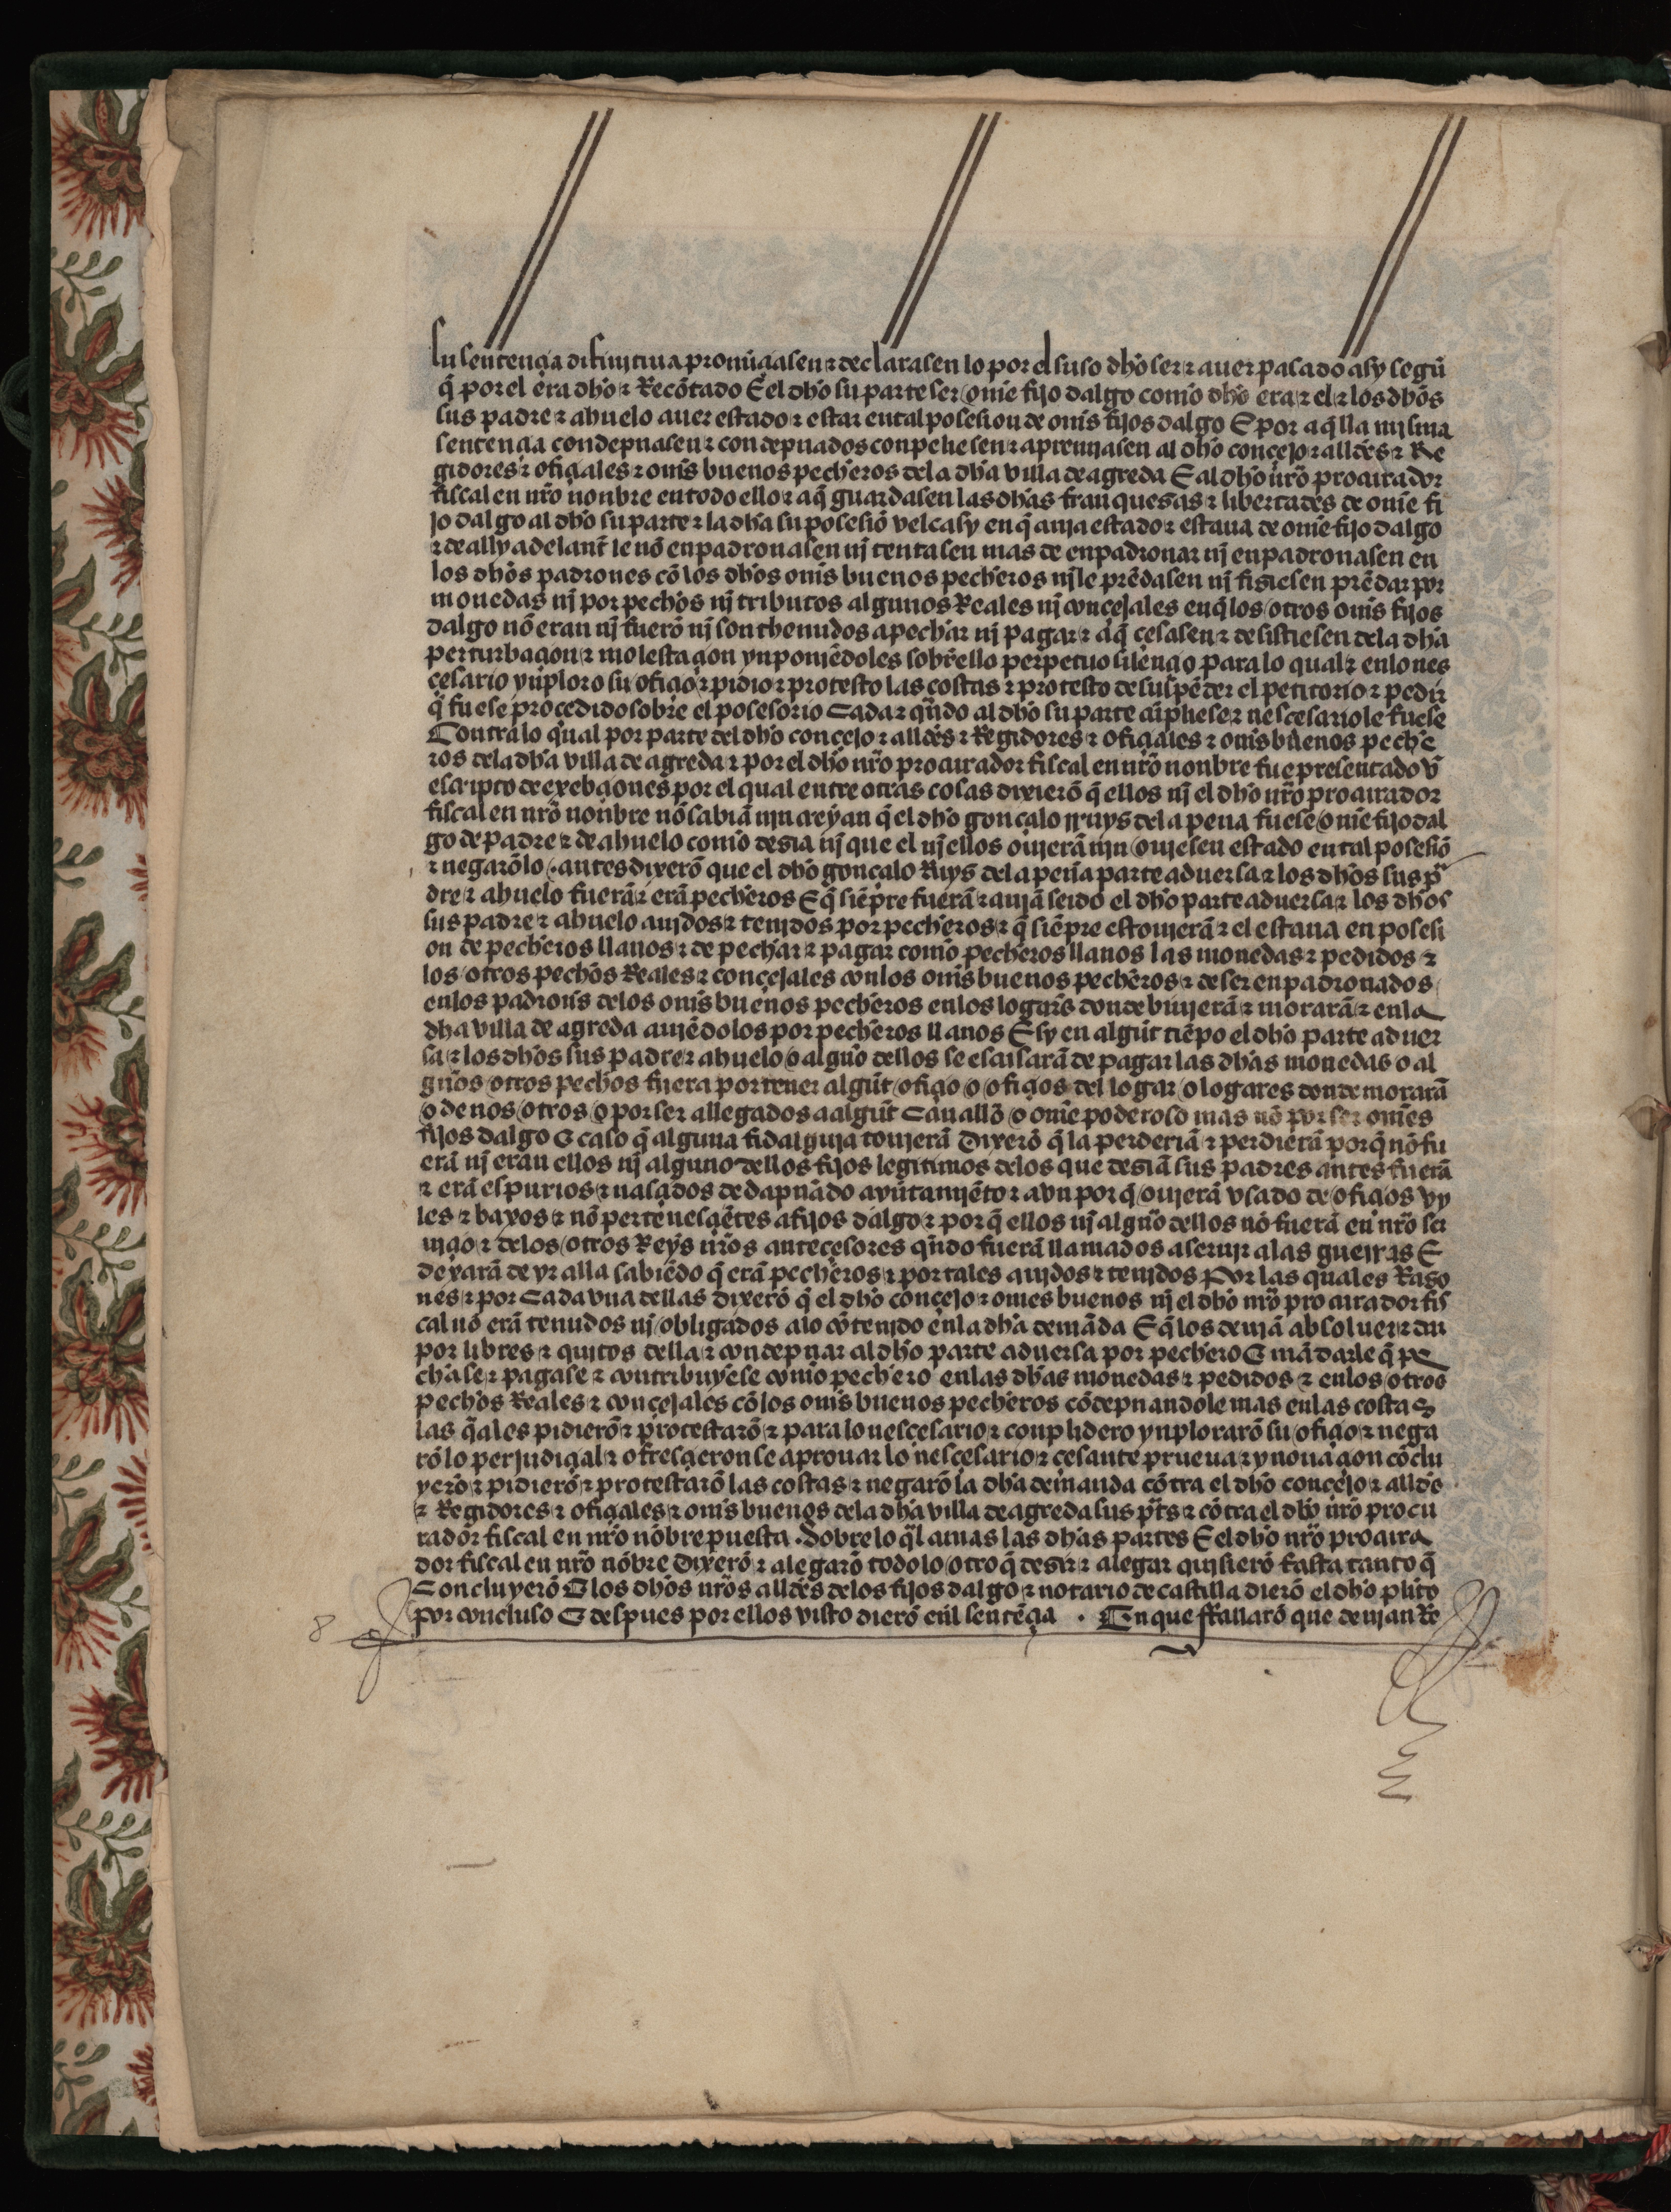 su sentençia difinjtiua pronũçiasen ⁊ declarasen lo por el suso dho ser ⁊ auer pasado asy segũ
q̃ por el era dho ⁊ Recõtado E el dho su parte ser ome fijo dalgo como dho era ⁊ el ⁊ los dhos
sus padre ⁊ abuelo auer estado ⁊ estar en tal posesion de oms fijos dalgo E por aq̃lla mjsma
sentençia condepnasen ⁊ condepnados conpeliesen ⁊ apremjasen al dho conçejo ⁊ alldes ⁊ Re
gidores ⁊ ofiçiales ⁊ oms buenos pecheros dela dha villa de agreda E al dho nro procurador
fiscal en nro nonbre en todo ello ⁊ a q̃ guardasen las dhas franquesas ⁊ libertades de ome fi
jo dalgo al dho su parte ⁊ la dha su posesiõ velcasy en q̃ auja estado ⁊ estaua de ome fijo dalgo
⁊ de ally adelant̃ le nõ enpadronasen nj tentasen mas de enpadronar nj enpadronasen en
los dhos padrones cõ los dhos oms buenos pecheros nj le prẽdasen nj fisiesen prẽdar por
monedas nj por pechos nj tributos algunos Reales nj conçejales en q̃ los otros oms fijos
dalgo nõ eran nj fuerõ nj son thenudos a pechar nj pagar ⁊ a q̃ çesasen ⁊ desistiesen dela dha
perturbaçion ⁊ molestaçion ynponjẽdoles sobrello perpetuo silençio para lo qual ⁊ en lo nes
çesario ynploro su ofiçio ⁊ pidio ⁊ protesto las costas ⁊ protesto de suspẽder el petitorio ⁊ pedir
q̃ fuese proçedido sobre el posesorio Cada ⁊ qñdo al dho su parte cũpliese ⁊ nesçesario le fuese
Contra lo qual por parte del dho conçejo ⁊ alldes ⁊ Regidores ⁊ ofiçiales ⁊ oms buenos peche
ros dela dha villa de agreda ⁊ por el dho nro procurador fiscal en nro nonbre fue presentado vn̄
escripto de exebçiones por el qual entre otras cosas dixierõ q̃ ellos nj el dho nro procurador
fiscal en nro nonbre nõ sabiã njn creyan q̃ el dho gonçalo rruys dela pena fuese ome fijo dal
go de padre ⁊ de abuelo como desia nj que el nj ellos oujerã njn oujesen estado en tal posesiõ
⁊ negarõlo · antes dixerõ que el dho gonçalo Ruys dela peña parte aduersa ⁊ los dhos sus p̃
dre ⁊ abuelo fuerã ⁊ erã pecheros E q̃ siẽpre fuerã ⁊ aujã seido el dho parte aduersa ⁊ los dhos
sus padre ⁊ abuelo aujdos ⁊ tenjdos por pecheros ⁊ q̃ siẽpre estoujerã ⁊ el estaua en posesi
on de pecheros llanos ⁊ de pechar ⁊ pagar como pecheros llanos las monedas ⁊ pedidos ⁊
los otros pechos Reales ⁊ conçejales con los oms buenos pecheros ⁊ de ser enpadronados
en los padrons delos oms buenos pecheros en los logars donde biujerã ⁊ morarã ⁊ en la
dha villa de agreda aujẽdolos por pecheros llanos E sy en algũt tiẽpo el dho parte aduer
sa ⁊ los dhos sus padre ⁊ abuelo o alguo dellos se escusarã de pagar las dhas monedas o al
guos otros pechos fuera por tener algũt ofiçio o ofiçios del logar o logares donde morarã
o de nos otros o por ser allegados a algũt Cauallo o ome poderoso mas nõ por ser omes
fijos dalgo E caso q̃ alguna fidalguja toujerã Dixerõ q̃ la perderiã ⁊ perdierã porq̃ nõ fu
erã nj eran ellos nj alguno dellos fijos legitimos delos que desiã sus padres antes fuerã
⁊ erã espurios ⁊ nasçidos de dapnado ayũtamjẽto ⁊ avn porq̃ oujerã vsado de ofiçios vy
les ⁊ baxos ⁊ nõ pertenesçiẽtes a fijos dalgo ⁊ por q̃ ellos nj alguo dellos nõ fuerã en nro ser
uiçio ⁊ delos otros Reys nros anteçesores qñdo fuerã llamados a serujr a las guerras E
dexarã de yr alla sabiẽdo q̃ erã pecheros ⁊ por tales aujdos ⁊ tenjdos Por las quales Raso
nes ⁊ por Cada vna dellas dixerõ q̃ el dho conçejo ⁊ omes buenos nj el dho nro procurador fis
cal nõ erã tenudos nj obligados a lo cõtenjdo en la dha demãda E q̃ los deujã absoluer ⁊ dar
por libres ⁊ quitos della ⁊ condepnar al dho parte aduersa por pechero E mãdarle q̃ pe
chase ⁊ pagase ⁊ contribuyese como pechero en las dhas monedas ⁊ pedidos ⁊ en los otros
pechos Reales ⁊ conçejales cõ los oms buenos pecheros cõdepnandole mas en las costas
las q̃ales pidierõ ⁊ protestarõ ⁊ para lo nesçesario ⁊ conplidero ynplorarõ su ofiçio ⁊ nega
rõ lo perjudiçial ⁊ ofresçieronse a prouar lo nesçesario ⁊ çesante prueua ⁊ ynouaçion cõclu
yerõ ⁊ pidierõ ⁊ protestarõ las costas ⁊ negarõ la dha demanda cõtra el dho conçejo ⁊ alldes
⁊ Regidores ⁊ ofiçiales ⁊ oms buenos dela dha villa de agreda sus pt̃s ⁊ cõtra el dho nro procu
rador fiscal en nro nõbre puesta · Sobre lo q̃l amas las dhas partes E el dho nro procura
dor fiscal en nro nõbre Dixerõ ⁊ alegarõ todo lo otro q̃ desir ⁊ alegar quisierõ fasta tanto q̃
Concluyerõ E los dhos nros alldes delos fijos dalgo ⁊ notario de castilla dierõ el dho plito
por concluso E despues por ellos visto dierõ en̄l sentẽçia · En que ffallarõ que deujan Re
8